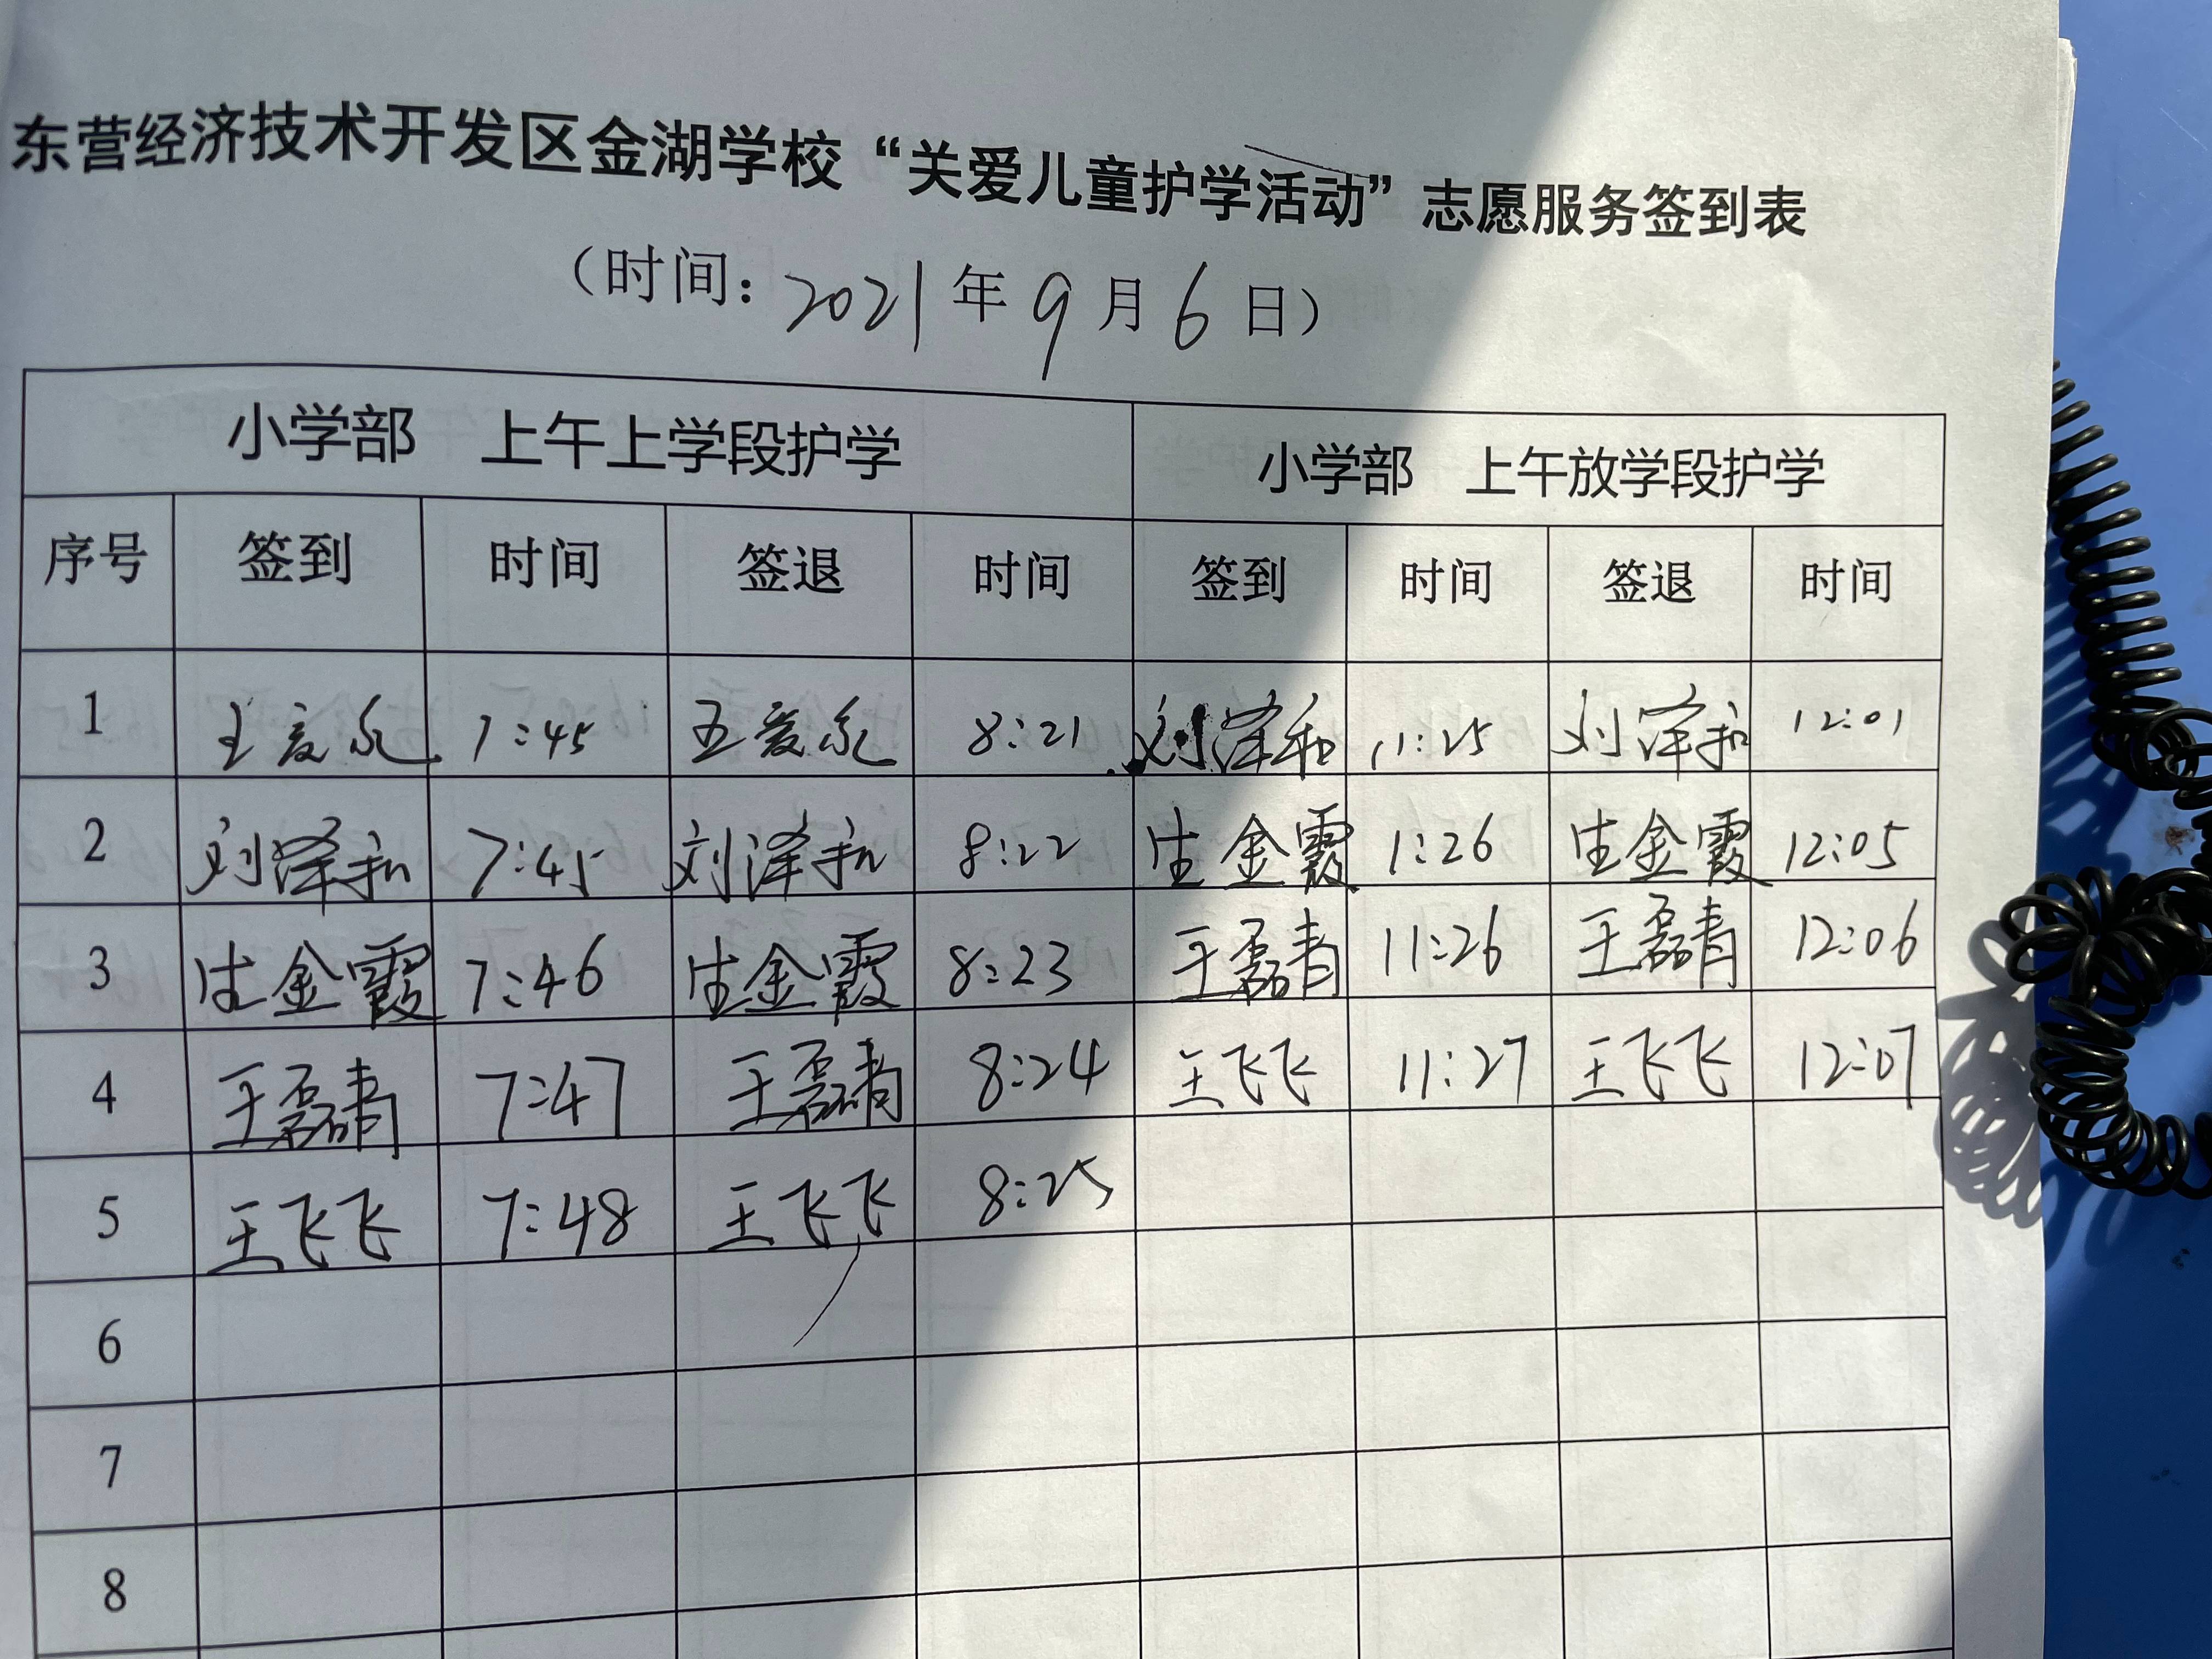 东营经济技术开发区金湖学校“关爱儿童护学活动”志愿服务签到表
（时间：2021年9月6日）
小学部 上午上学段护学 小学部 上午放学段护学
序号 签到 时间 签退 时间 签到 时间 签退 时间
1 王 7:45 王 8:21 刘泽和 11:25 刘泽和 12:01
2 刘泽和 7:45 刘泽和 8:22 生金霞 1:26 生金霞 12:05
3 生金霞 7:46 生金霞 8:23 王磊青 11:26 王磊青 12:06
4 王磊青 7:47 王磊青 8:24 王飞飞 11:27 王飞飞 12:07
5 王飞飞 7:48 王飞飞 8:25
6
7
8